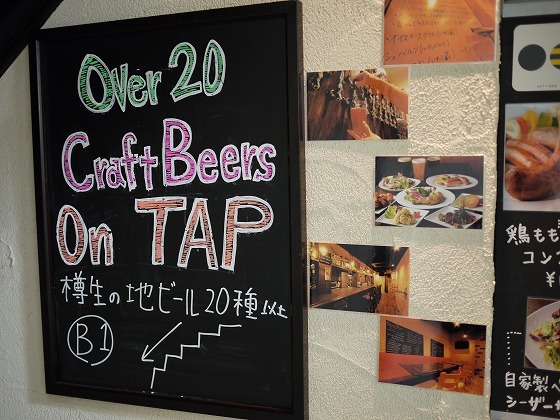 Over 20
Craft Beers
On TAP
樽生の地ビール20種以上
B1
鶏もも
コン
¥
自家製
シーザー